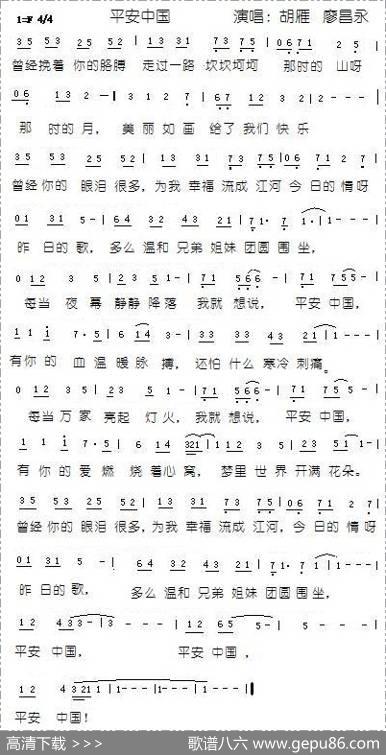 1=F 4/4 平安中国 演唱：胡雁 廖昌永
35 53 25 52 | 13 31 73 75 | 06 71 2 5 |
曾经挽着 你的胳膊 走过一路 坎坎坷坷 那时的 山呀
06 1 3 - - | 3 1 2 7 | 67 12 3 2 | 1 - - - |
那 时的月， 美丽如画 给了我们快乐
35 53 25 52 | 13 31 73 75 | 06 71 2 7 |
曾经你的 眼泪很多，为我 幸福 流成 江河 今 日的情呀
01 31 5 - | 64 43 32 21 | 71· 7 1· | 1 - - - |
昨 日的歌，多么 温和 兄弟 姐妹 团圆 围 坐，
0 12 3 5 | 23 51 - | 71 566 - | 71 755 - |
每当 夜 幕 静静 降落 我就 想说， 平安 中国，
11 1 7·5 | 6 14 3 - | 43 33 43 21 | 1 - - - |
有你的 血 温 暖 脉 搏，还怕 什么 寒冷 刺痛。
0 12 3 5 | 23 51 - | 71 566 - | 71 755 - |
每当万 家 亮起 灯火，我就 想说， 平安 中国，
11 1 7·5 | 6 14 321 | 112 3 2 | 1 - - - |
有 你 的 爱 燃 烧 着心 窝， 梦里 世 界 开满 花朵。
35 53 25 52 | 13 31 73 75 | 06 71 2 7 |
曾经你的 眼泪 很多，为我 幸福 流成 江河，今 日的 情 呀
01 31 5 - | 64 43 32 21 | 71· 71 | 1 - - - |
昨 日的歌， 多么 温和 兄弟 姐妹 团圆围坐，
12 433 - | 3 - - - | 12 65 5 - | 5 - - - |
平安 中国， 平安 中国，
12 4 3321 | 1 - - - | 1 - - - ‖
平安 中国！
高清下载 >>> 歌谱八六 www.gepu86.com